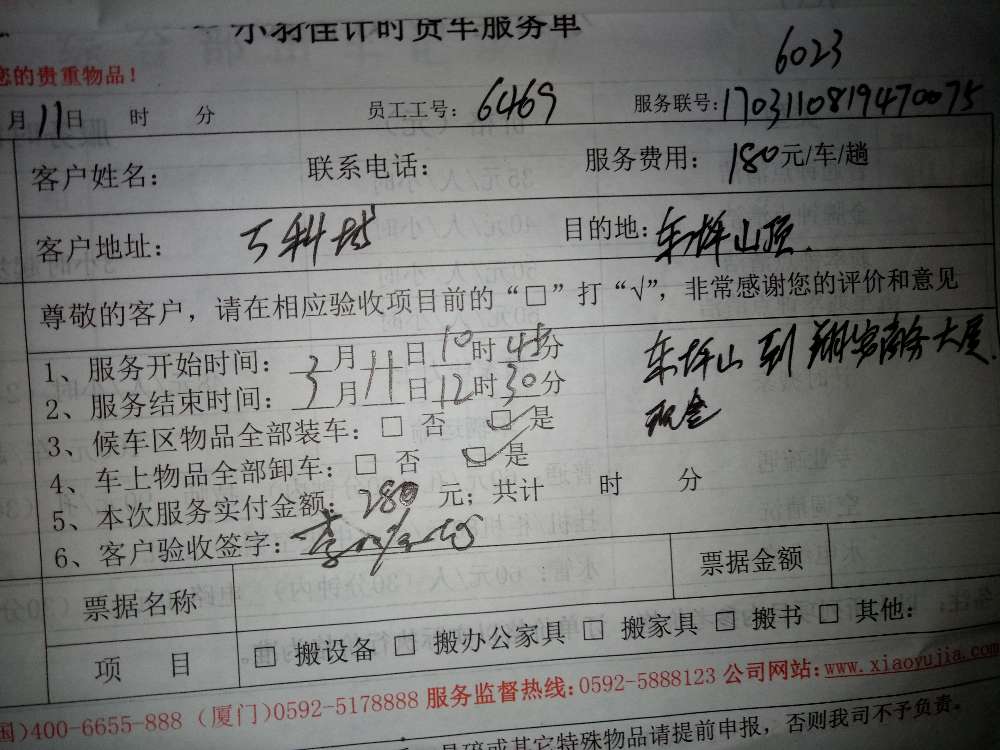 计时货车服务单
您的贵重物品！
6023
月11日 时 分 员工工号：6469 服务联号：1703110819470075
客户姓名： 联系电话： 服务费用：180元/车/趟
客户地址：万科城 目的地：东坪山顶
尊敬的客户，请在相应验收项目前的“□”打“√”，非常感谢您的评价和意见
1、服务开始时间：3月11日10时45分
2、服务结束时间：3月11日12时30分
东坪山到翔安商务大厦
现金
3、候车区物品全部装车：□ 否 ☑是
4、车上物品全部卸车：□ 否 ☑是
5、本次服务实付金额：280元；共计 时 分
6、客户验收签字：
票据名称 票据金额
项 目 □ 搬设备 □ 搬办公家具 □ 搬家具 □ 搬书 □ 其他：
国)400-6655-888（厦门)0592-5178888 服务监督热线：0592-5888123 公司网站：www.xiaoyujia.com
或其它特殊物品请提前申报，否则我司不予负责。